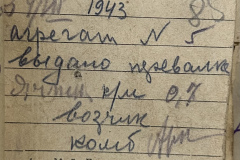 1943 85
агрегат N 5
выдано перевалка
Ячмень к/м 0,7
возчик
комб